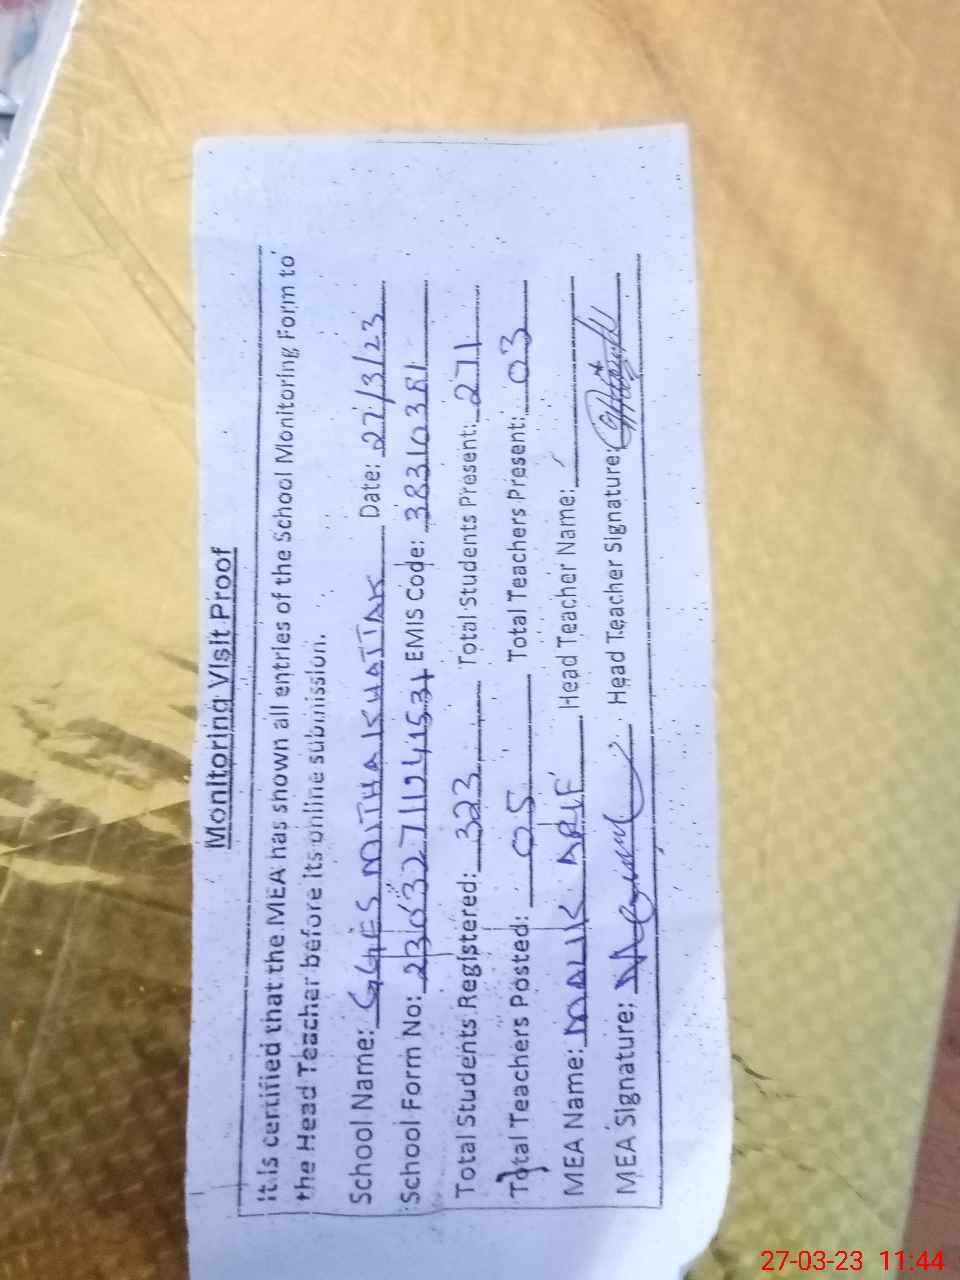 Monitoring Visit Proof
It is certified that the MEA has shown all entries of the School Monitoring Form to
the Head Teacher before its online submission.
School Name: GGES MITHA KHATTAK Date: 27/3/23
School Form No: EMIS Code: 38310381
Total Students Registered: 323 Total Students Present: 271
Total Teachers Posted: 05 Total Teachers Present: 03
MEA Name: MALIK ARIF Head Teacher Name:
MEA Signature: Head Teacher Signature:
27-03-23 11:44